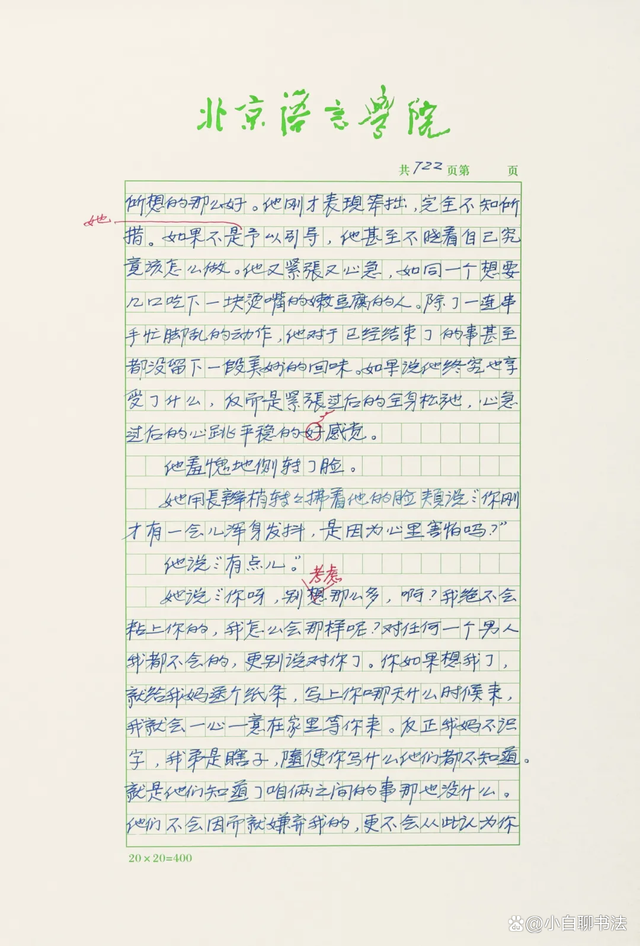 北京语言学院
共722页第 页
所想的那么好。他刚才表现笨拙，完全不知所
她
措。如果不是予以引导，他甚至不晓着自己究
竟该怎么做。他又紧張又心急，如同一个想要
几口吃下一块烫嘴的嫩豆腐的人。除了一连串
手忙脚乱的动作，他对于已经结束了的事甚至
都没留下一段美妙的回味。如果说他终究也享
受了什么，反而是紧張过后的全身松弛，心急
过后的心跳平稳的好感觉。
他羞愧地侧转了脸。
她用長辫梢轻轻拂着他的脸颊说："你刚
才有一会儿浑身发抖，是因为心里害怕吗？"
他说："有点儿。"
考虑
她说："你呀，别想那么多，啊？我绝不会
粘上你的，我怎么会那样呢？对任何一个男人
我都不会的，更别说对你了。你如果想我了，
就给我妈递个纸条，写上你哪天什么时候来，
我就会一心一意在家里等你来。反正我妈不识
字，我弟是瞎子，随便你写什么他们都不知道。
就是他们知道了咱俩之间的事那也没什么。
他们不会因而就嫌弃我的，更不会从此认为你
20×20=400
小白聊书法